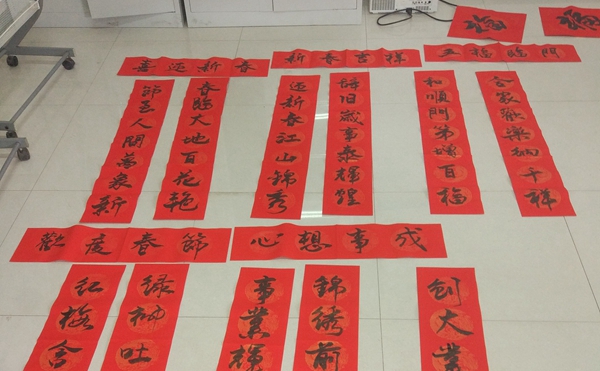 福
福
喜迎新春
新春吉祥
五福臨門
節至人間萬象新
春臨大地百花艳
迎新春江山錦秀
辞旧歲事泰輝煌
和順門第增百福
合家歡樂納千祥
歡度春節
心想事成
红梅含
绿柳吐
事業輝
錦绣前
創大業